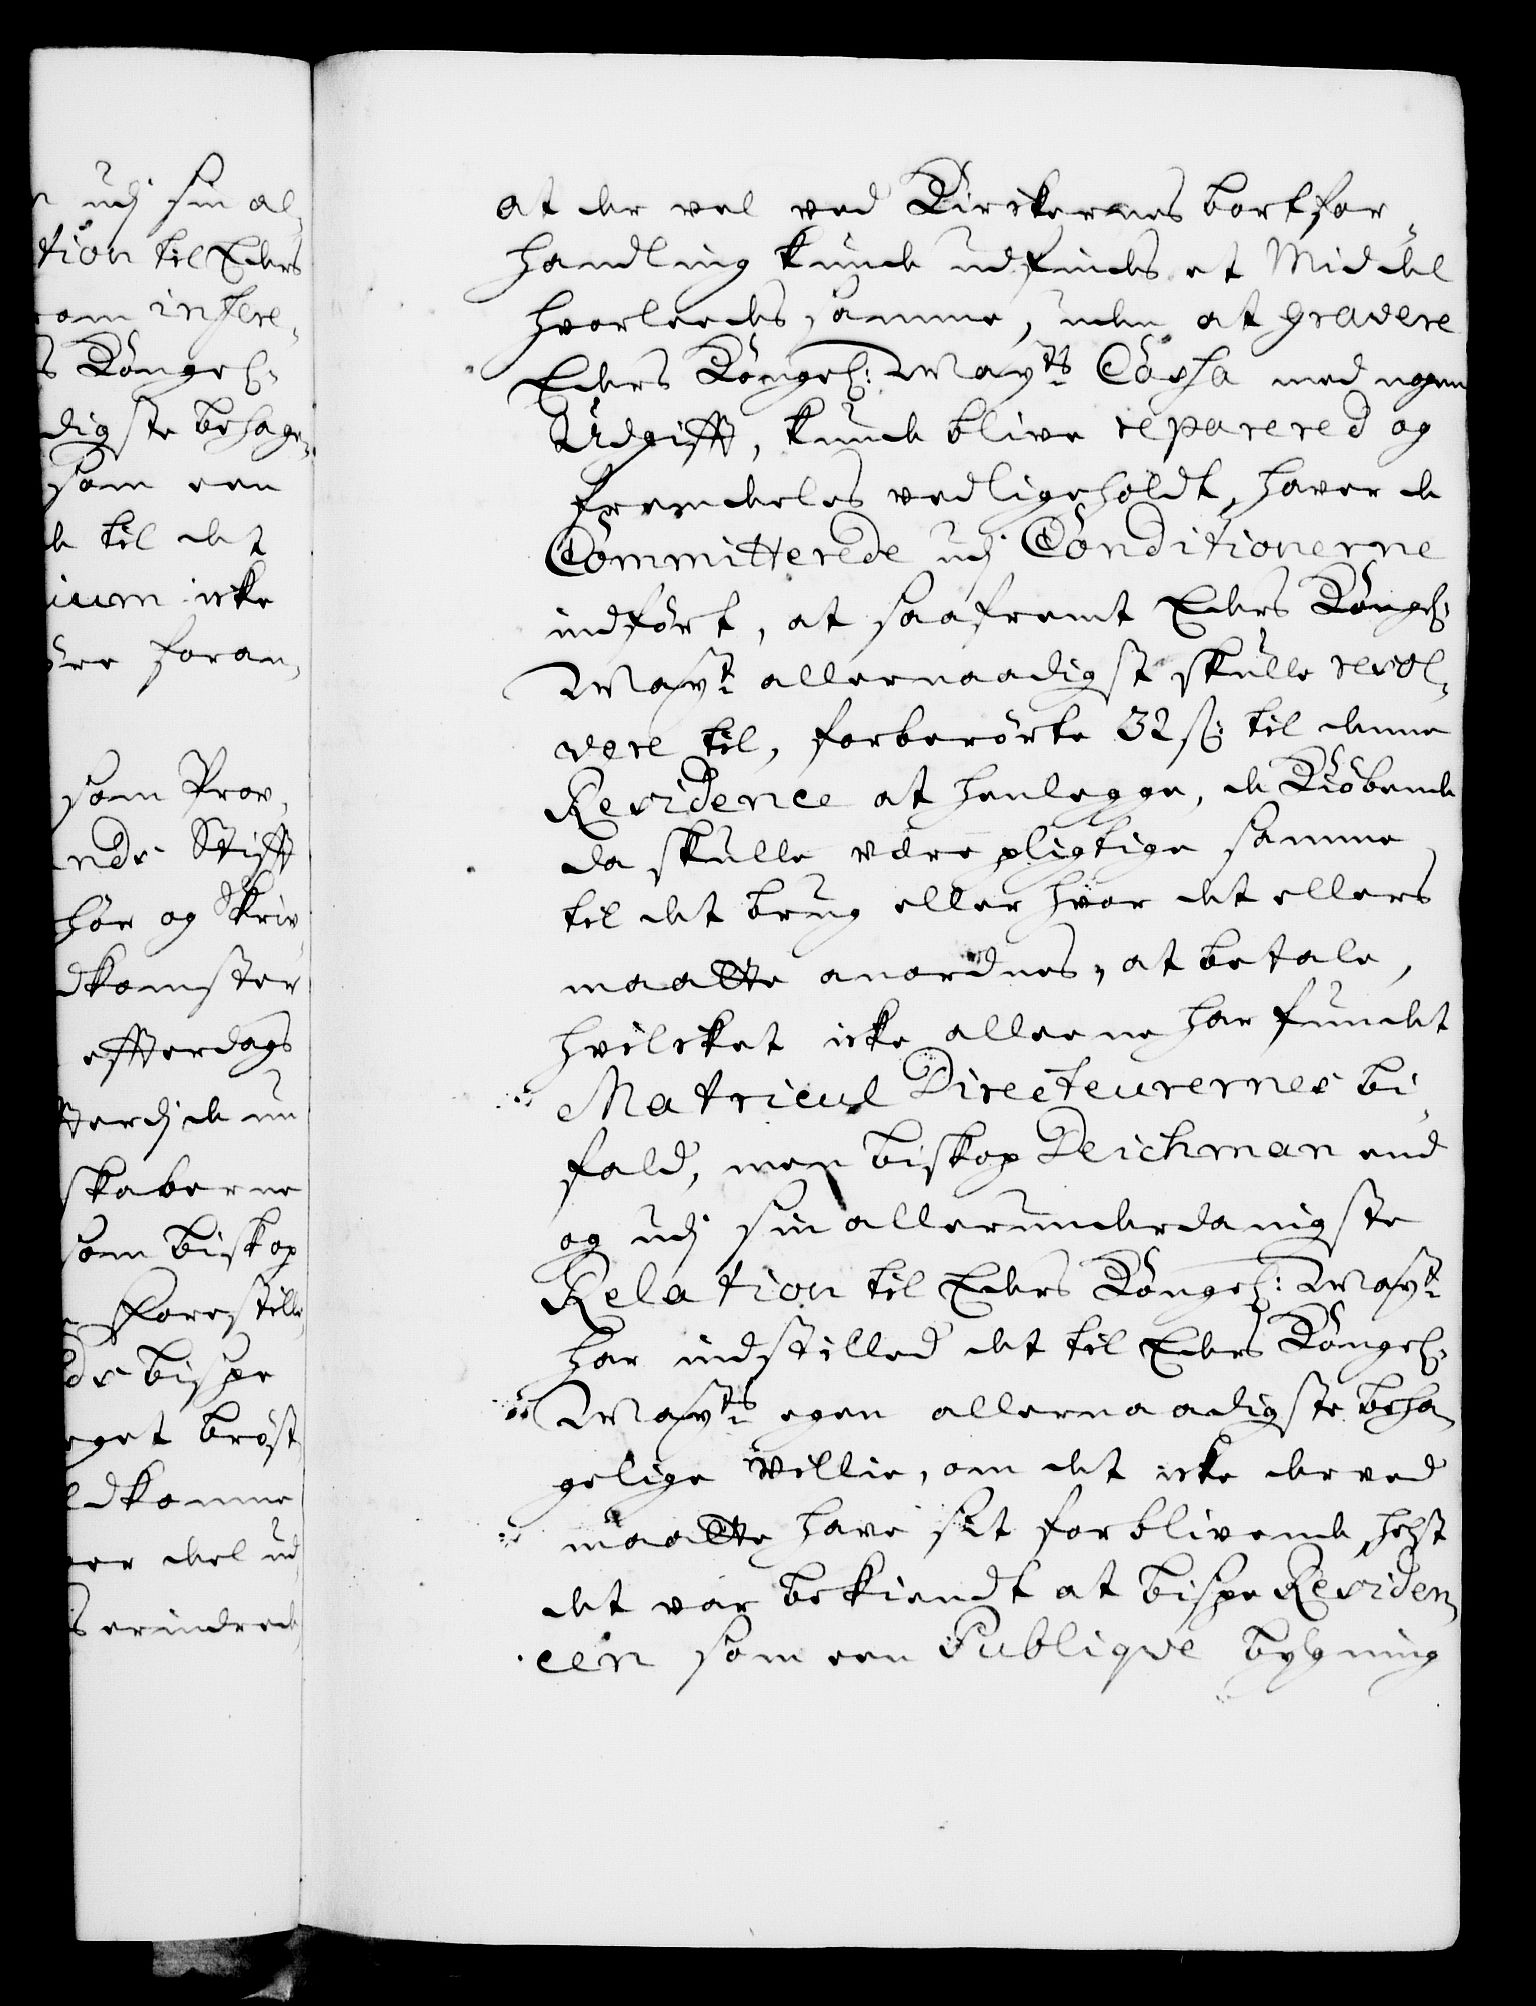 udj sin al-
tion til Eders
om infere-
s Kongel:
digste behage-
som een
de til det
ium icke
øre foran-
som Prov-
nds Stifft
hør og Skriv-
dkomster
effterdags
terdj de nu
skaberne
som biskop
Forestille
ds bispe
eget brøst-
edkomme
er deel ud-
s erindrede
at der vel ved Kirckernes bortfor-
handling kunde udfindes et Middel
hvorleedes samme, uden at gravere
Eders Kongel: Mayts Cassa med nogen
Udgifft, kunde blive reparered og
fremdeles vedligeholdt, haver de
Committerede udj Conditionerne
indført, at saafremt Eders Kongel:
Mayt allernaadigst skulle resol-
vere til, forberørte 32 s: til denne
Residence at henlegge, de Kiøbende
da skulle være pligtige samme
til det brug eller hvor det ellers
maatte anordnes, at betale,
hvilcket icke alleene har fundet
Matricul Directeurernes bi-
fald, men biskop Deichman end
og udj sin allerunderdanigste
Relation til Eders Kongel: Mayt
har indstilled det til Eders Kongel:
Mayts egen allernaadigste beha-
gelige Villie, om det icke derved
maatte have sit forblivende, helst
det var bekiendt at bispe Residen-
cen som een Publique bygning